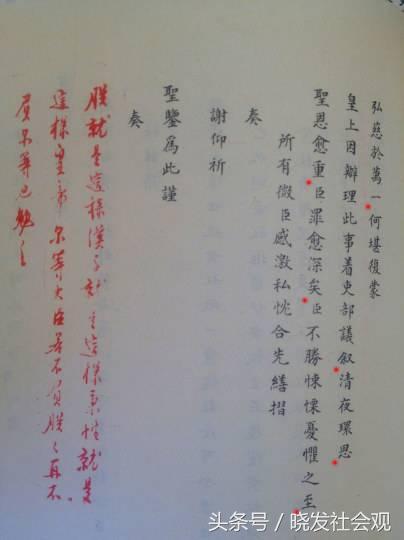 弘慈於萬一何堪復蒙
皇上因辦理此事着吏部議叙清夜環思
聖恩愈重臣罪愈深矣臣不勝悚慄憂懼之至
所有微臣感激私忱合先繕摺
奏
謝仰祈
聖鑒爲此謹
奏
朕就是這樣漢子就是這樣秉性就是
這樣皇帝尔等大臣若不負朕々再不
負尔等也勉之
头条号 / 晓发社会观